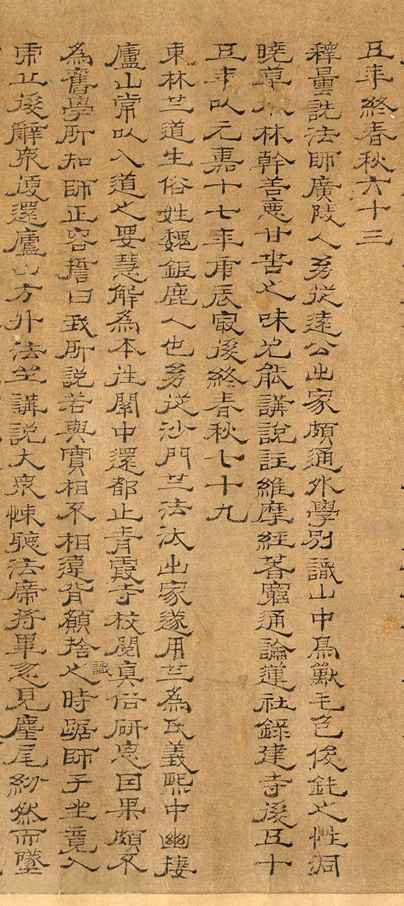 五年終春秋六十三
釋曇詵法師廣陵人㓜從遠公出家頗通外學別識山中鳥獸毛色俊鈍之性洞
曉草林幹善惡甘苦之味能講說註維摩經著窮通論蓮社錄建寺後五十
五年以元嘉十七年庚辰寂後終春秋七十九
東林竺道生俗姓魏鉅鹿人也㓜從沙門竺法汰出家遂用竺為氏義熙中幽棲
廬山常以入道之要慧解為本往關中還都止青霞寺校閱真俗研窮因果頗不
為舊學所知師正容誓曰我所說若與實相不相違背願捨識之時踞師子坐竟入
虎丘後辭眾復還廬山方外法坐講說大眾悚聽法席將畢忽見麈尾紛然而墜